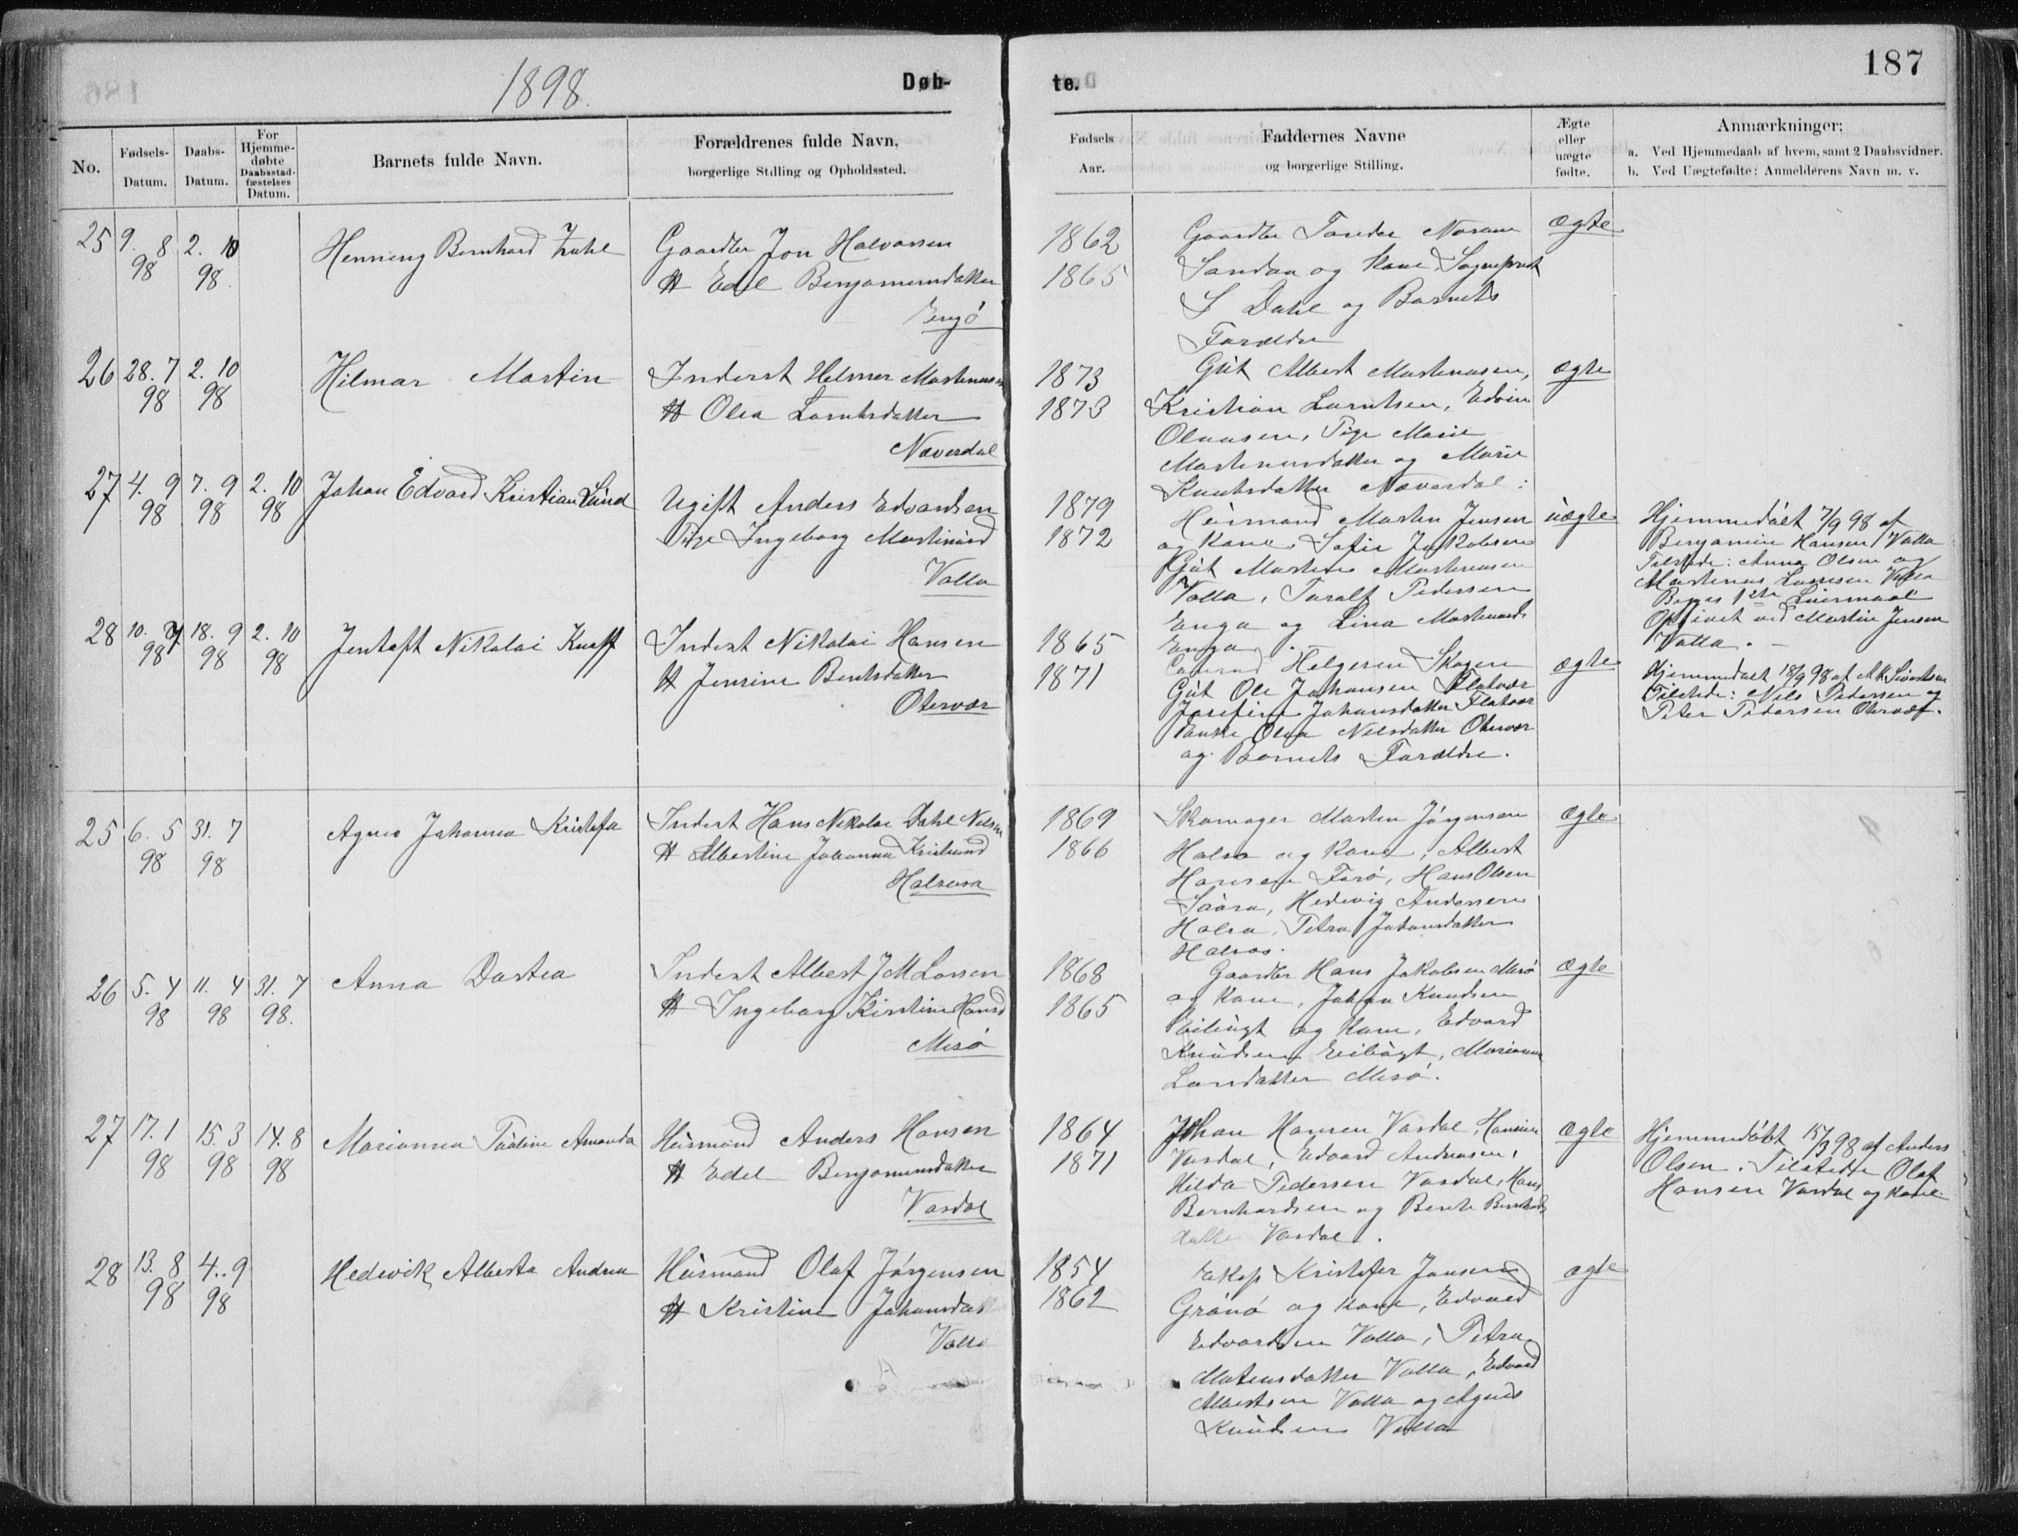 1898.
Døb-
te.
187
No.
Fødsels-
Datum.
Daabs-
Datum.
For
Hjemme-
døbte
Daabsstad-
fæstelses
Datum.
Barnets fulde Navn.
Forældrenes fulde Navn,
borgerlige Stilling og Opholdssted.
Fødsels
Aar.
Faddernes Navne
og borgerlige Stilling.
Ægte
eller
uægte
fødte.
Anmærkninger;
a. Ved Hjemmedaab af hvem, samt 2 Daabsvidner.
b. Ved Uægtefødte: Anmelderens Navn m. v.
25 9. 8 98 2. 10 98
Henning Bernhard
Gaardbr Jon Halvorsen
H Edel Benjaminsdatter
Engø
1862
1865
Gaardbr
og Kone, Sognepræst
S Dahl og Barnets
Forældre
ægte
26 28. 7 98 2. 10 98
Hilmar Martin
Inderst Helmer Martinussen
H Olea Larntsdatter
Næverdal
1873
1873
Gut Albert Martinusen,
Kristian Larntsen, Edvin
Olausen, Pige Marie
Martinusdatter og Marie
Knutsdatter Næverdal:
ægte
27 4. 9 98 7. 9 98 2. 10 98
Johan Edvard Kristian Lund
Ugift Anders Edvardsen
Pige Ingeborg Martinusd
Valla
1879
1872
Husmand Martin Jensen
og Kone, Sofie Jakobsen
Gut Martin Martinusen
Valla, Toralf Pedersen
Enga og Lina Martinusd
Enga.
uægte
Hjemmedøbt 7/9 98 af
Benjamin Hansen Valla
Tilstede: Anna Olsen og
Martinus Larsen Valla
Begges 1ste Leiermaal
Opgivet ved Martin Jensen
Valla. -
28 10. 7 98 18. 9 98 2. 10 98
Jentoft Nikolai Knoff
Inderst Nikolai Hansen
H Jensine Bentsdatter
Otervær
1865
1871
Helgesen Skogen
Gut Ole Johansen Flatvær
Josefine Johansdatter Flatvær
Enke Olea Nilsdatter Otervær
og Barnets Forældre.
ægte
Hjemmedøbt 18/9 98 af M. Sivertsen
Tilstede: Nils Pedersen og
Peter Pedersen Otervær.
25 6. 5 98 31. 7 98
Agnes Johanna Kristofa
Inderst Hans Nikolai Dahl Nilsen
H Albertine Johanna Kristiansd
Halsosa
1869
1866
Skomager Martin Jørgensen
Halsa og Kone, Albert
Hansen Forø, Hans Olsen
Saura, Hedevig Andersen
Halsa, Petra Johansdatter
Halsos.
ægte
26 5. 4 98 11. 4 98 31. 7 98.
Anna Dortea
Inderst Albert J M Larsen
H Ingeborg Kirstine Hansd
Mesø
1868
1865
Gaardbr Hans Jakobsen Mesø
og Kone, Johan Knudsen
Esibugt og Kone, Edvard
Knudsen Esibugt, Marianna
Larsdatter Mesø.
ægte
27 17. 1 98 15. 3 98 14. 8 98
Marianna Pauline Amanda
Husmand Anders Hansen
H Edel Benjaminsdatter
Vasdal
1864
1871
Johan Hansen Vasdal, Hansine
Vasdal, Edvard Andreasen,
Hilda Pedersen Vasdal, Hans
Bernhardsen og Berit Bernhards
datter Vasdal.
ægte
Hjemmedøbt 15/3 98 af Anders
Olsen. Tilstede Olaf
Hansen Vasdal og Kone.
28 13. 8 98 4. 9 98
Hedevik Alberta Andrea
Husmand Olaf Jørgensen
H Kristine Johansdatter
Valla
1854
1862
Ekap Kristofer Jansen
Grønø og Kone, Edvard
Edvardsen Valla, Petra
Matensdatter Valla, Edvard
Albertsen Valla og Agnes
Knudsen Valla
ægte